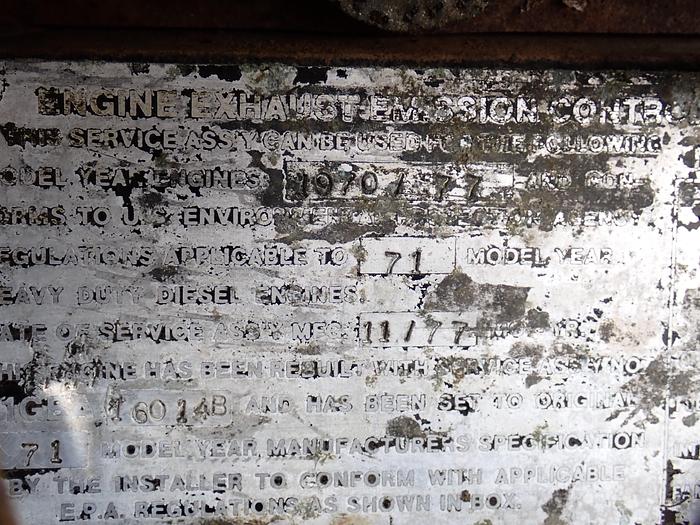 ENGINE EXHAUST EMISSION CONTRO
THIS SERVICE ASS'Y CAN BE USED FOR THE FOLLOWING
ODEL YEAR ENGINES: 1970/ 77 AND CON-
ORMS TO U.S. ENVIRONMENTAL PROTECTION AGENCY
EGULATIONS APPLICABLE TO 71 MODEL YEAR
EAVY DUTY DIESEL ENGINES.
ATE OF SERVICE ASS'Y MFG. 11/77 YR.
HE ENGINE HAS BEEN REBUILT WITH SERVICE ASS'Y NO.
6014B AND HAS BEEN SET TO ORIGINAL
71 MODEL YEAR MANUFACTURERS SPECIFICATION
BY THE INSTALLER TO CONFORM WITH APPLICABLE
E.P.A. REGULATIONS AS SHOWN IN BOX.